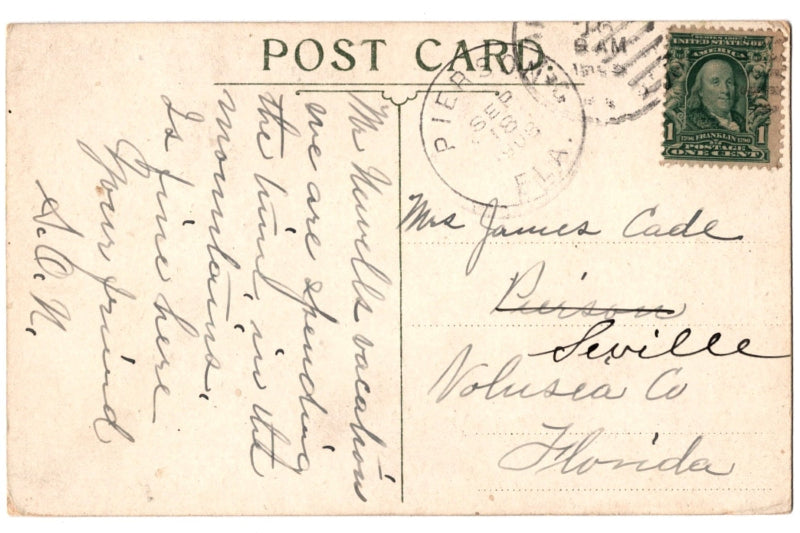 POST CARD
PIERSON,
SEP
18
FLA.
9 AM
SERIES 1902
UNITED STATES OF
AMERICA
1 1
FRANKLIN
POSTAGE
ONE CENT
Mr Newells vacation
we are spending
the time, in the
mountains.
Is fine here
Your friend
A.O.N.
Mrs James Cade
Pierson
Seville
Volusia Co
Florida